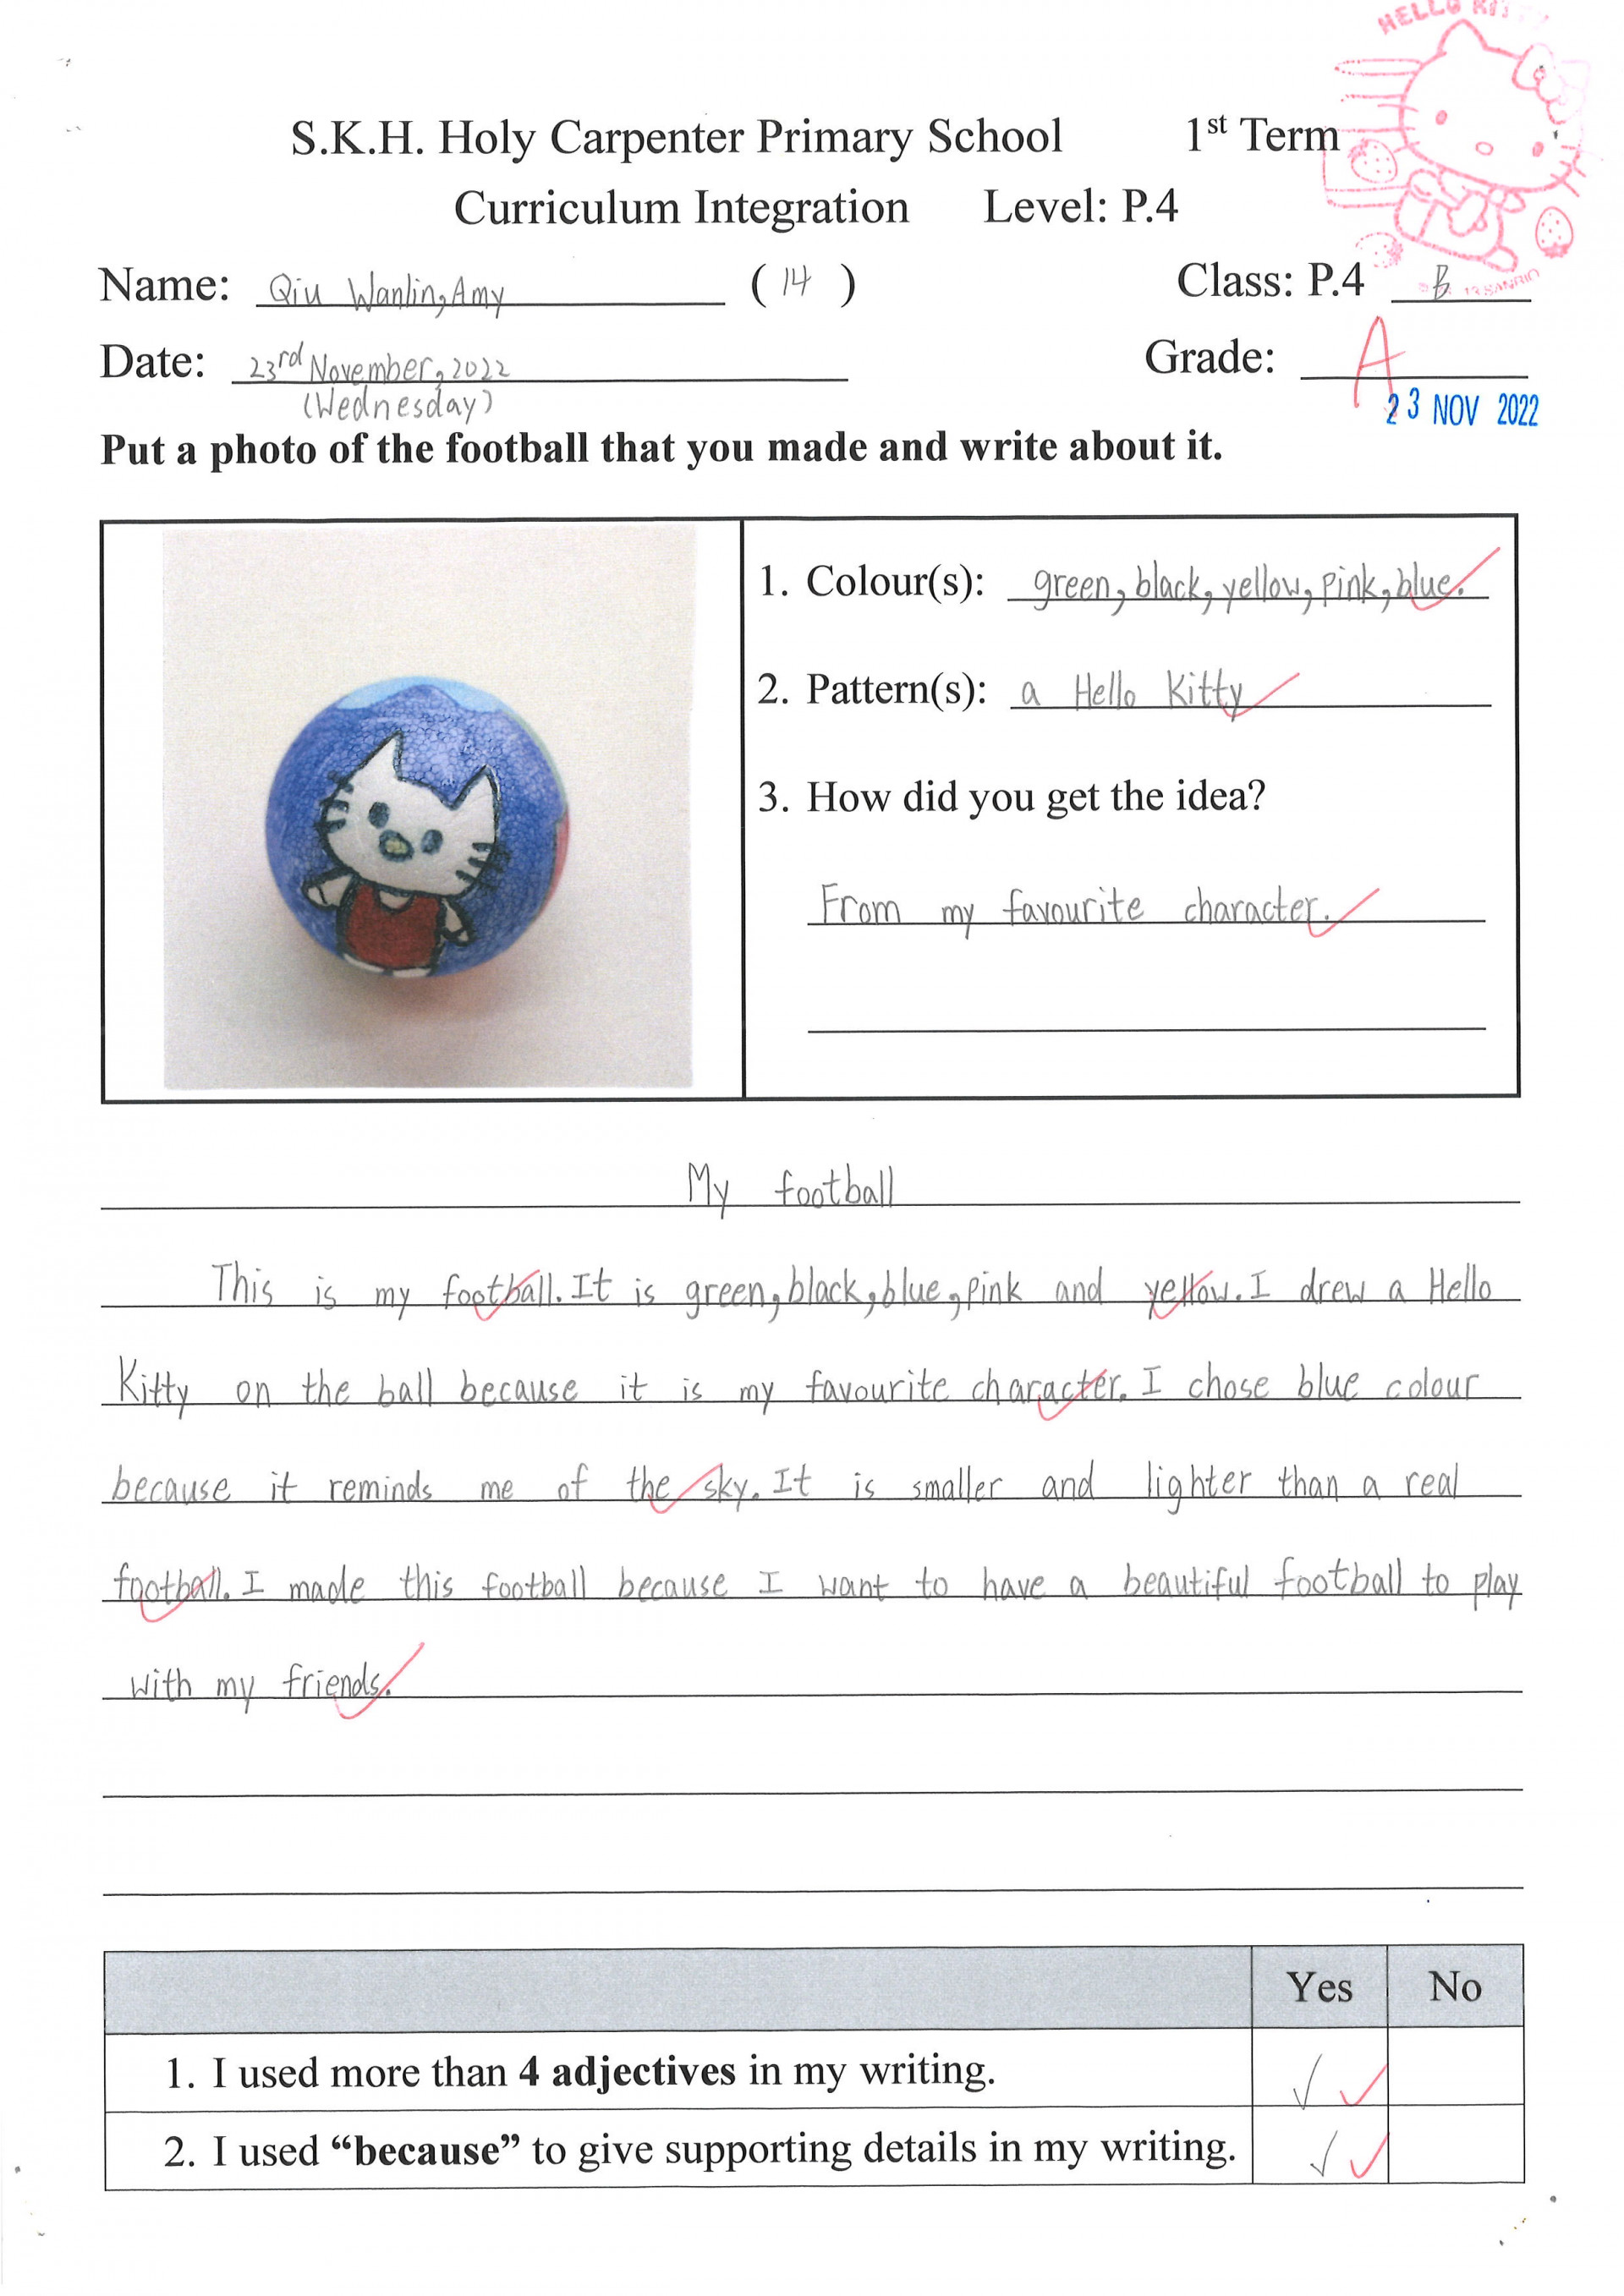 HELLO KITTY
S.K.H. Holy Carpenter Primary School 1st Term
Curriculum Integration Level: P.4
Name: Qiu Wanlin, Amy ( 14 ) Class: P.4 B
SANRIO
Date: 23rd November, 2022 Grade: A
(Wednesday)
23 NOV 2022
Put a photo of the football that you made and write about it.
1. Colour(s): green, black, yellow, pink, blue.
2. Pattern(s): a Hello Kitty
3. How did you get the idea?
From my favourite character.
My football
This is my football. It is green, black, blue, pink and yellow. I drew a Hello
Kitty on the ball because it is my favourite character. I chose blue colour
because it reminds me of the sky. It is smaller and lighter than a real
football. I made this football because I want to have a beautiful football to play
with my friends.
Yes No
1. I used more than 4 adjectives in my writing.
2. I used “because” to give supporting details in my writing.